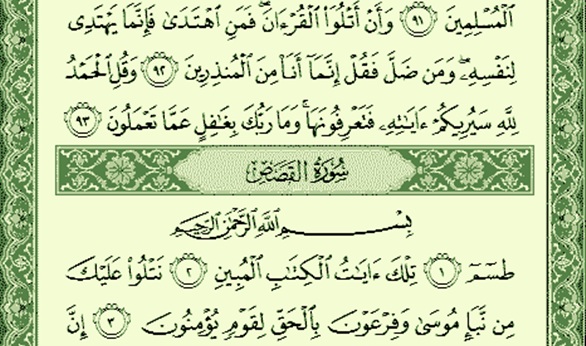 ٱلْمُسْلِمِينَ ٩١ وَأَنْ أَتْلُوَا۟ ٱلْقُرْءَانَ ۖ فَمَنِ ٱهْتَدَىٰ فَإِنَّمَا يَهْتَدِى
لِنَفْسِهِۦ ۖ وَمَن ضَلَّ فَقُلْ إِنَّمَآ أَنَا۠ مِنَ ٱلْمُنذِرِينَ ٩٢ وَقُلِ ٱلْحَمْدُ
لِلَّهِ سَيُرِيكُمْ ءَايَٰتِهِۦ فَتَعْرِفُونَهَا ۚ وَمَا رَبُّكَ بِغَٰفِلٍ عَمَّا تَعْمَلُونَ ٩٣
سُورَةُ القَصَصِ
بِسْمِ ٱللَّهِ ٱلرَّحْمَٰنِ ٱلرَّحِيمِ
طسٓمٓ ١ تِلْكَ ءَايَٰتُ ٱلْكِتَٰبِ ٱلْمُبِينِ ٢ نَتْلُوا۟ عَلَيْكَ
مِن نَّبَإِ مُوسَىٰ وَفِرْعَوْنَ بِٱلْحَقِّ لِقَوْمٍ يُؤْمِنُونَ ٣ إِنَّ